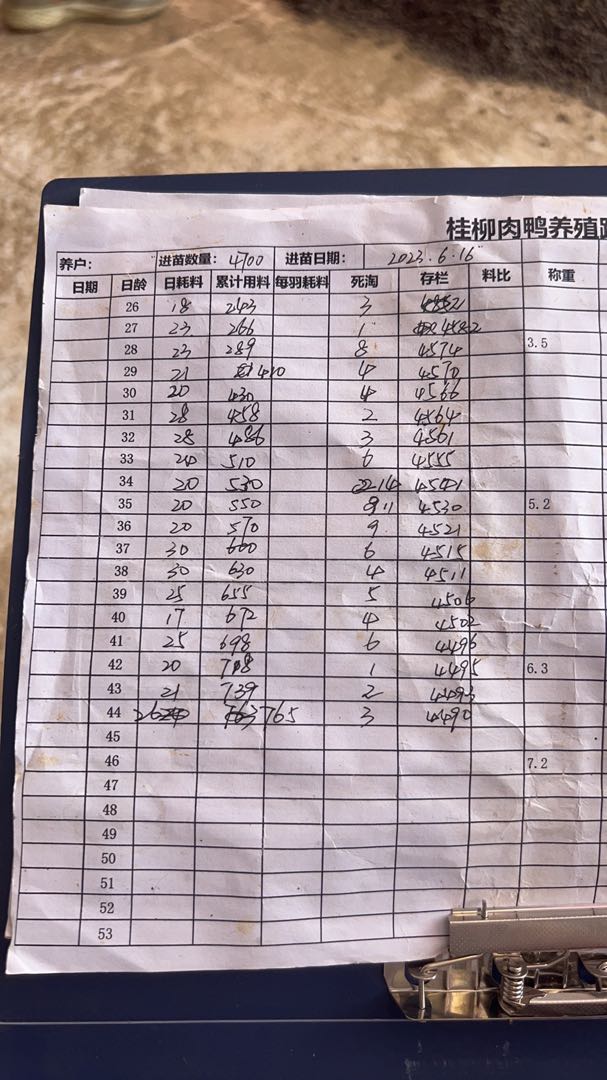 桂柳肉鸭养殖
养户： 进苗数量： 4700 进苗日期： 2023.6.16
日期 日龄 日耗料 累计用料 每羽耗料 死淘 存栏 料比 称重
26 18 243 3
27 23 266 1 4582
28 23 289 8 4574 3.5
29 21 410 4 4570
30 20 430 4 4566
31 28 458 2 4564
32 28 486 3 4561
33 24 510 6 4555
34 20 530 14 4541
35 20 550 11 4530 5.2
36 20 570 9 4521
37 30 600 6 4515
38 30 630 4 4511
39 25 655 5 4506
40 17 672 4 4502
41 25 698 6 4496
42 20 718 1 4495 6.3
43 21 739 2 4493
44 26 765 3 4490
45
46 7.2
47
48
49
50
51
52
53